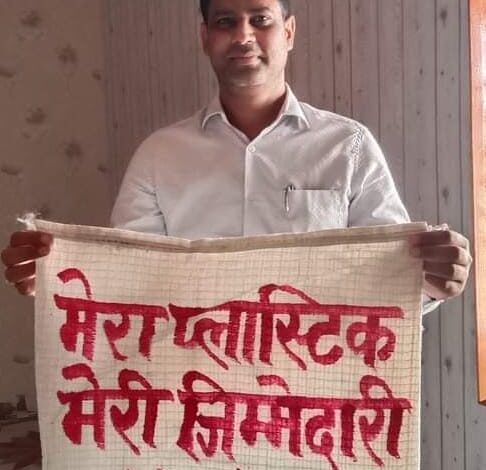 मेरा प्लास्टिक
मेरी ज़िम्मेदारी